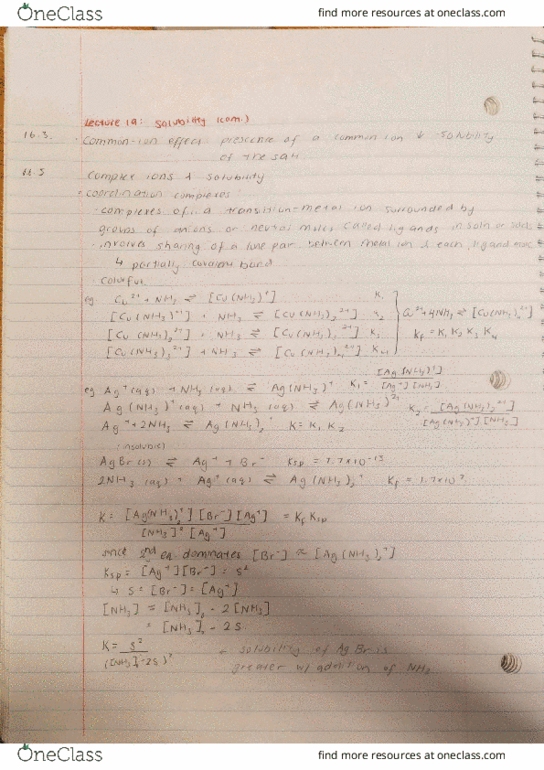 OneClass find more resources at oneclass.com
Lecture 19: Solubility (con.)
16.3. Common-ion effect: prescence of a common ion ↓ solubility
of the salt
16.5 Complex ions & solubility
coordination complexes:
- complexes of a transition-metal ion surrounded by
groups of anions or neutral called ligands in soln or solids
- involves sharing of a lone pair between metal ion & each ligand
↳ partially covalent bond
- colorful
eg. Cu²⁺ + NH₃ ⇌ [Cu(NH₃)²⁺] K₁
[Cu(NH₃)²⁺] + NH₃ ⇌ [Cu(NH₃)₂²⁺] K₂
[Cu(NH₃)₂²⁺] + NH₃ ⇌ [Cu(NH₃)₃²⁺] K₃
[Cu(NH₃)₃²⁺] + NH₃ ⇌ [Cu(NH₃)₄²⁺] K₄
Cu²⁺ + 4NH₃ ⇌ [Cu(NH₃)₄²⁺]
Kf = K₁ K₂ K₃ K₄
eg Ag⁺(aq) + NH₃(aq) ⇌ Ag(NH₃)⁺ K₁ = [Ag(NH₃)⁺] / [Ag⁺][NH₃]
Ag(NH₃)⁺(aq) + NH₃(aq) ⇌ Ag(NH₃)²⁺ K₂ = [Ag(NH₃)₂⁺] / [Ag(NH₃)⁺][NH₃]
Ag⁺ + 2NH₃ ⇌ Ag(NH₃)₂⁺ K = K₁ K₂
AgBr(s) ⇌ Ag⁺ + Br⁻ Ksp = 7.7x10⁻¹³
2NH₃(aq) + Ag⁺(aq) ⇌ Ag(NH₃)₂⁺ Kf = 1.7x10⁷
K = [Ag(NH₃)₂⁺][Br⁻][Ag⁺] / [NH₃]²[Ag⁺] = Kf Ksp
since 2nd eq. dominates [Br⁻] ≈ [Ag(NH₃)₂⁺]
Ksp = [Ag⁺][Br⁻] = s²
↳ s = [Br⁻] = [Ag⁺]
[NH₃] = [NH₃]₀ - 2[NH₃]
= [NH₃]₀ - 2s
K = s² / ([NH₃]₀-2s)² ← solubility of AgBr is
greater w/ addition of NH₃
OneClass find more resources at oneclass.com